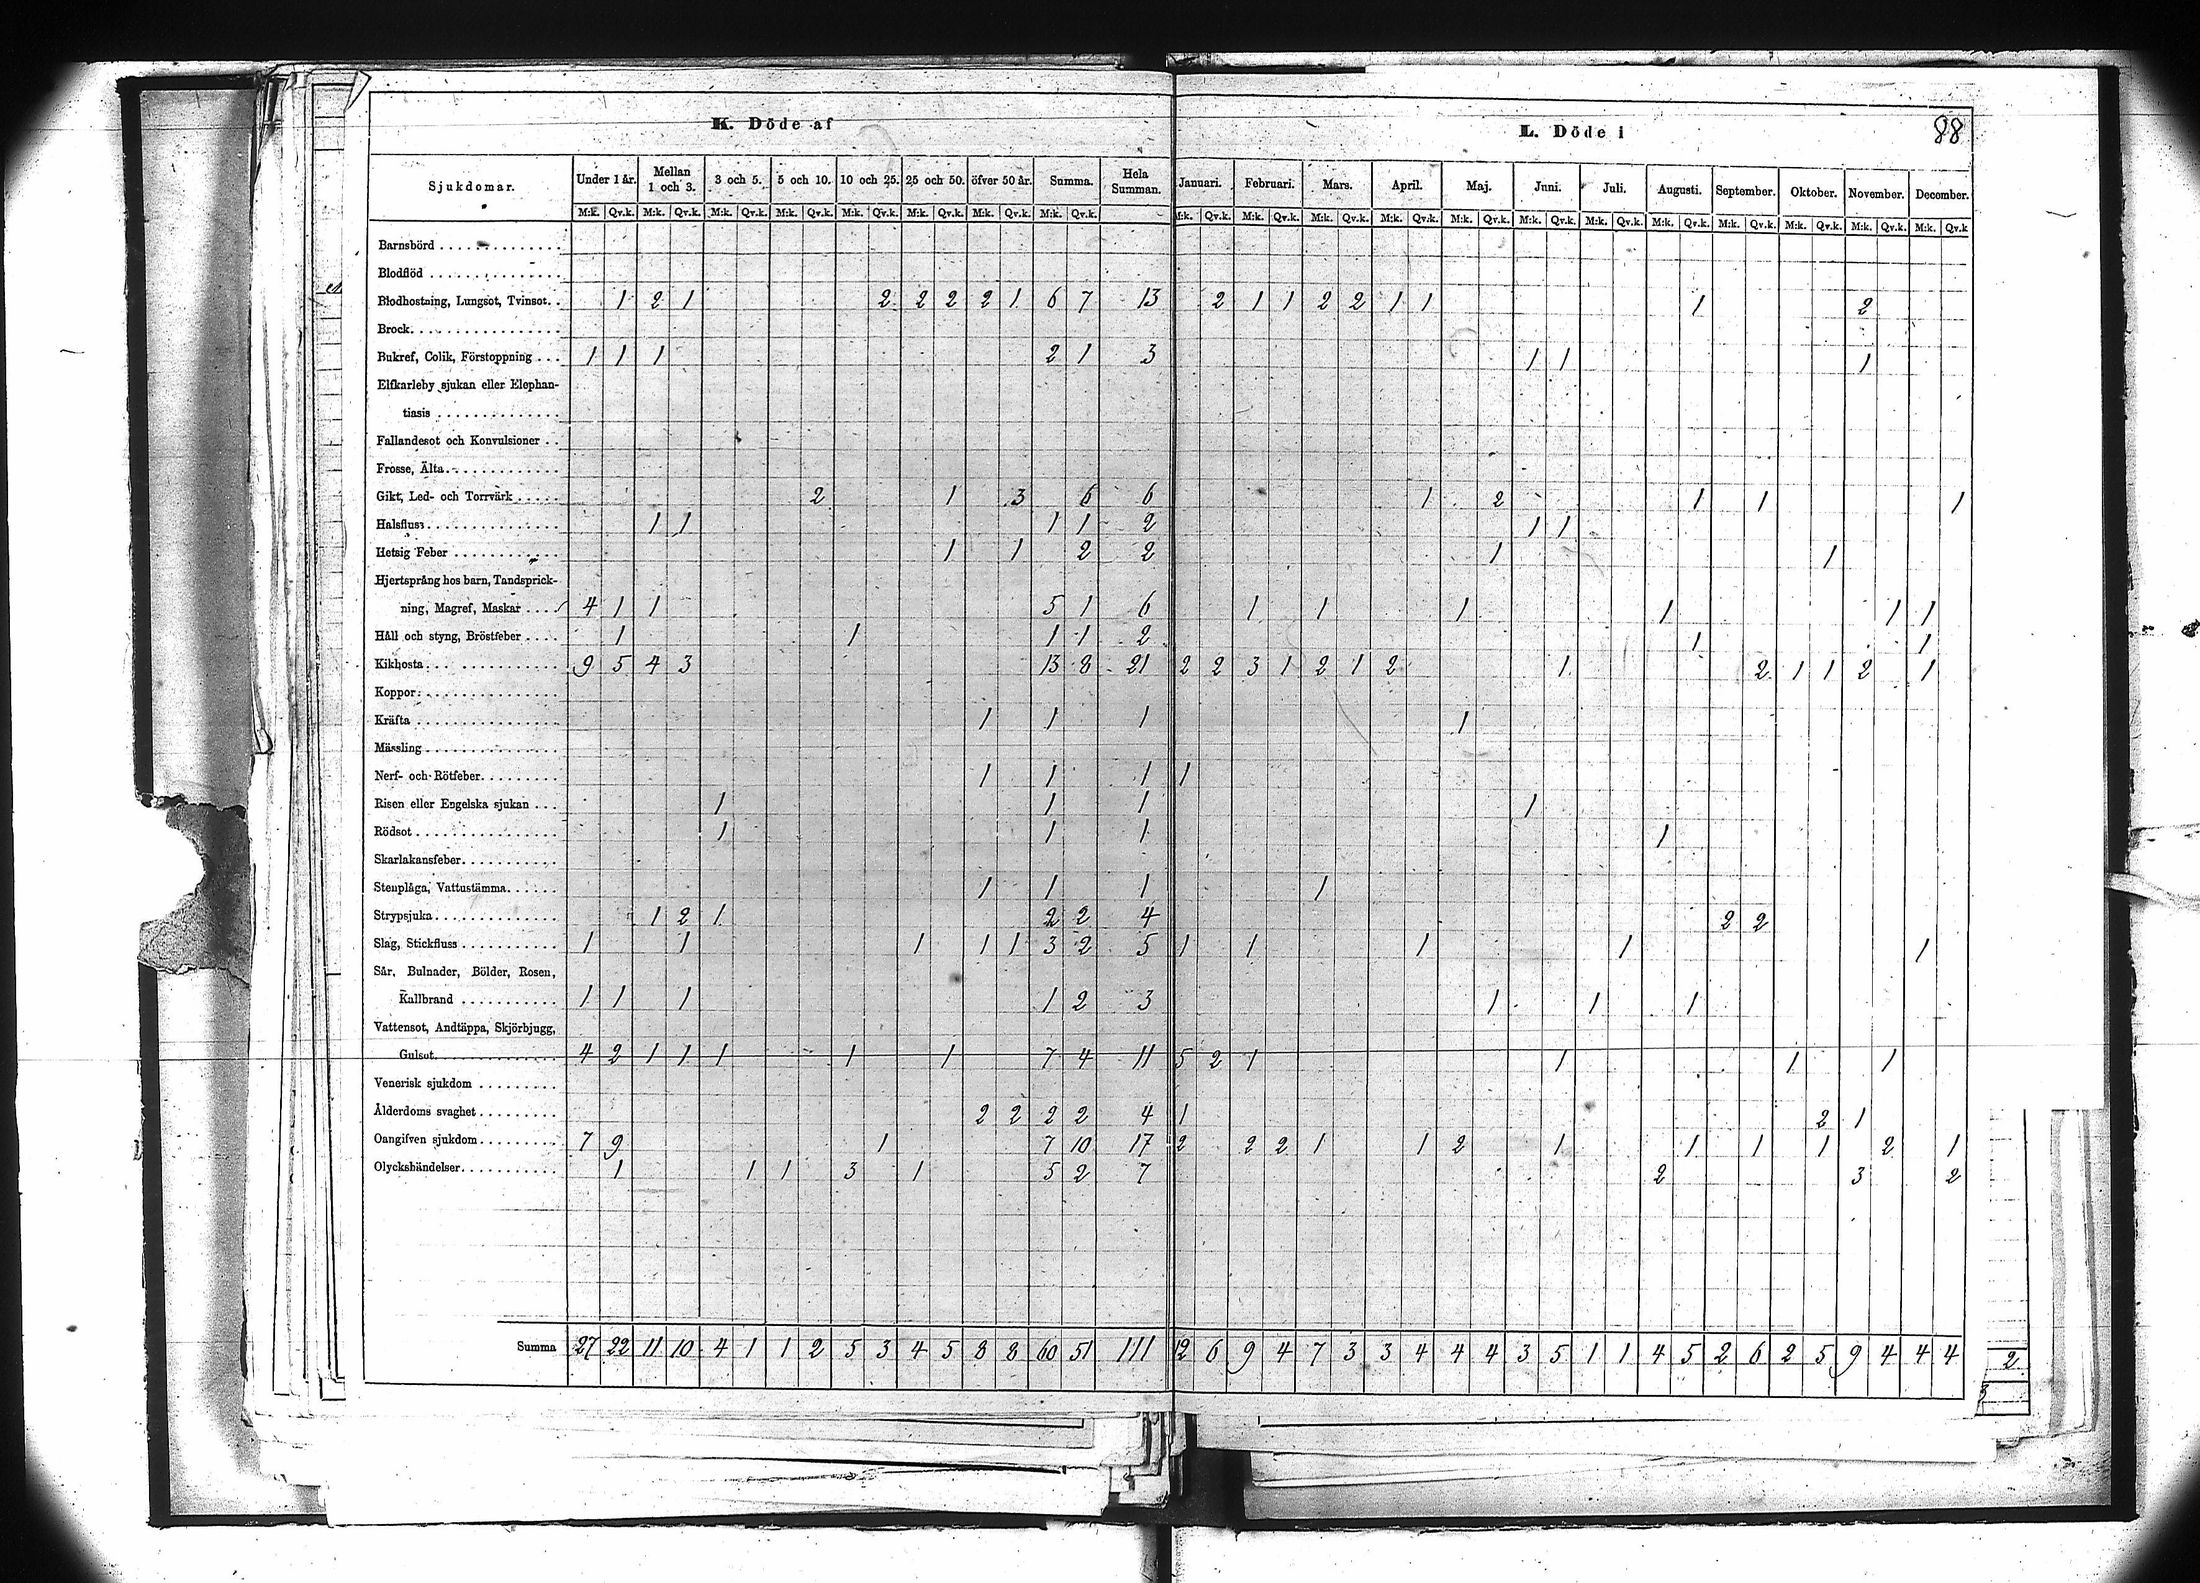 K. Döde af L. Döde i 88
Sjukdomar. Under 1 år. Mellan 1 och 3. 3 och 5. 5 och 10. 10 och 25. 25 och 50. öfver 50 år. Summa. Hela Summan. Januari. Februari. Mars. April. Maj. Juni. Juli. Augusti. September. Oktober. November. December.
M:k. Qv.k. M:k. Qv.k. M:k. Qv.k. M:k. Qv.k. M:k. Qv.k. M:k. Qv.k. M:k. Qv.k. M:k. Qv.k. M:k. Qv.k. M:k. Qv.k. M:k. Qv.k. M:k. Qv.k. M:k. Qv.k. M:k. Qv.k. M:k. Qv.k. M:k. Qv.k. M:k. Qv.k. M:k. Qv.k. M:k. Qv.k. M:k. Qv.k
Barnsbörd
Blodflöd
Blodhostning, Lungsot, Tvinsot. 1 2 1 2 2 2 2 1 6 7 13 2 1 1 2 2 1 1 1 2
Brock
Bukref, Colik, Förstoppning 1 1 1 2 1 3 1 1 1
Elfkarleby sjukan eller Elephan-
tiasis
Fallandesot och Konvulsioner
Frosse, Älta
Gikt, Led- och Torrvärk 2 1 3 6 6 1 2 1 1 1
Halsfluss 1 1 1 1 2 1 1
Hetsig Feber 1 1 2 2 1 1
Hjertsprång hos barn, Tandsprick-
ning, Magref, Maskar 4 1 1 5 1 6 1 1 1 1 1 1
Håll och styng, Bröstfeber 1 1 1 1 2 1 1
Kikhosta 9 5 4 3 13 8 21 2 2 3 1 2 1 2 1 2 1 1 2 1
Koppor
Kräfta 1 1 1 1
Mässling
Nerf- och Rötfeber 1 1 1 1
Risen eller Engelska sjukan 1 1 1 1
Rödsot 1 1 1 1
Skarlakansfeber
Stenplåga, Vattustämma 1 1 1 1
Strypsjuka 1 2 1 2 2 4 2 2
Slag, Stickfluss 1 1 1 1 1 3 2 5 1 1 1 1 1
Sår, Bulnader, Bölder, Rosen,
Kallbrand 1 1 1 1 2 3 1 1 1
Vattensot, Andtäppa, Skjörbjugg,
Gulsot 4 2 1 1 1 1 1 7 4 11 5 2 1 1 1 1
Venerisk sjukdom
Ålderdoms svaghet 2 2 2 2 4 1 2 1
Oangifven sjukdom 7 9 1 7 10 17 2 2 2 1 1 2 1 1 1 1 2 1
Olyckshändelser 1 1 1 3 1 5 2 7 2 3 2
Summa 27 22 11 10 4 1 1 2 5 3 4 5 8 8 60 51 111 12 6 9 4 7 3 3 4 4 4 3 5 1 1 4 5 2 6 2 5 9 4 4 4
2